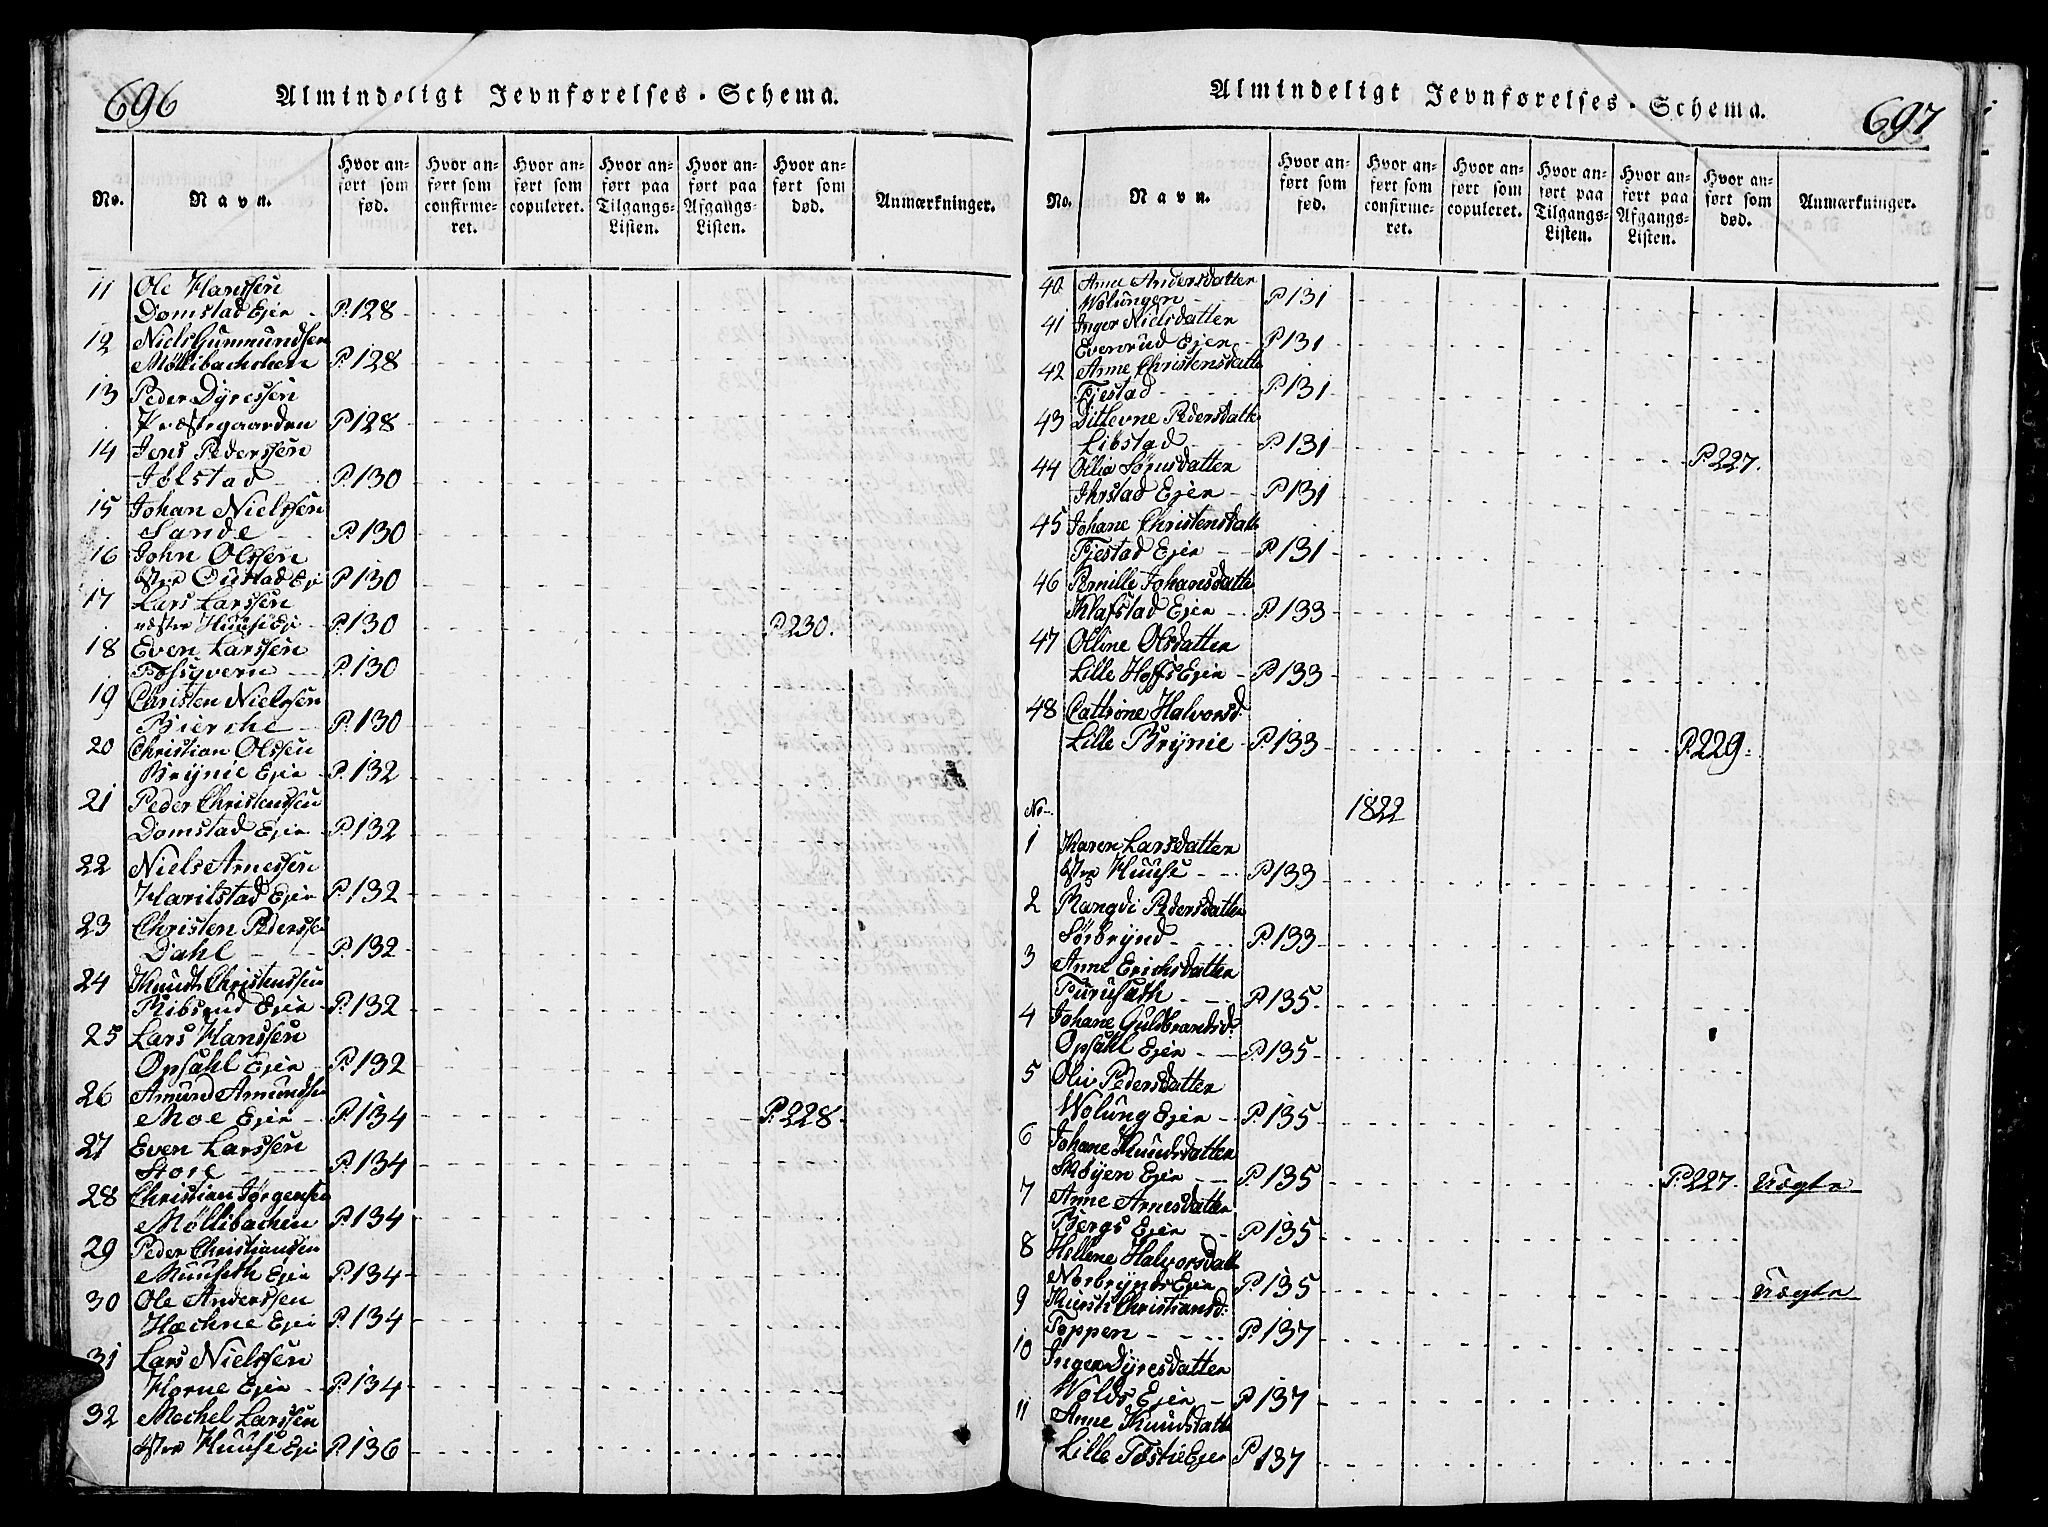 696
Almindeligt Jevnførelses-Schema.
No. Navn. Hvor anført som fød. Hvor anført som confirmeret. Hvor anført som copuleret. Hvor anført paa Tilgangs-Listen. Hvor anført paa Afgangs-Listen. Hvor anført som død. Anmærkninger.
11 Ole Hanssen
Domstad Ejer P.128
12 Niels Gummundsen
Møllibachchen P.128
13 Peder Dyressen
Præstegaarden P.128
14 Jens Pederssen
Jølstad P.130
15 Johan Nielssen
Sande P.130
16 John Olssen
østre Oustad Ej P.130
17 Lars Larssen
væstre Huuse Ej P.130 P.230.
18 Even Larssen
Fossyvern P.130
19 Christen Nielssen
Bierche P.130
20 Christian Olssen
Brynie Ejer P.132
21 Peder Christenssen
Domstad Ejer P.132
22 Niels Arnessen
Harilstad Ejer P.132
23 Christen Pederssen
Dahl P.132
24 Knudt Christenssen
Ribsrud Ejer P.132
25 Lars Hanssen
Opsahl Ejer P.132
26 Amund Amundsen
Moe Ejer P.134 P.228.
27 Even Larssen
Store P.134
28 Christian Jørgensen
Møllibachen P.134
29 Peder Christiansen
Muuseth Ejer P.134
30 Ole Anderssen
Hæchne Ejer P.134
31 Lars Nielssen
Horne Ejer P.134
32 Mechel Larssen
østre Huuse Ej P.136
697
Almindeligt Jevnførelses-Schema.
No. Navn. Hvor anført som fød. Hvor anført som confirmeret. Hvor anført som copuleret. Hvor anført paa Tilgangs-Listen. Hvor anført paa Afgangs-Listen. Hvor anført som død. Anmærkninger.
40 Anne Andersdatter
Wolungen P.131
41 Inger Nielsdatter
Evenrud Ejer P.131
42 Anne Christensdatter
Fjestad P.131
43 Dittevne Pedersdatter
Libstad P.131 P.227.
44 Ollia Sørnsdatter
Ihrstad Ejer P.131
45 Johane Christensdatt
Fjestad Ejer P.131
46 Pernille Johansdatter
Klafstad Ejer P.133
47 Olline Olsdatter
Lille Hoffs Ejer P.133
48 Cattrine Halvorsd:
Lille Brynie P.133 P.229.
No. 1822
1 Karen Larsdatter
østre Huuse P.133
2 Rangdi Pedersdatter
Sørbrynd P.133
3 Anne Erichsdatter
Furuseth P.135
4 Johane Guldbrandsd:
Opsahl Ejer P.135
5 Oliv Pedersdatter
Wolung Ejer P.135
6 Johane Knudsdatter
Skøyen Ejer P.135 P.227. uægte
7 Anne Arnesdatter
Bergs Ejer P.135
8 Hellene Halvorsdatt
Nørbrynds Ejer P.135 uægte
9 Kiersti Christiansd:
Toppen P.137
10 Inger Dyresdatter
Wolds Ejer P.137
11 Anne Knudsdatt
Lille Tøstie Ejer P.137